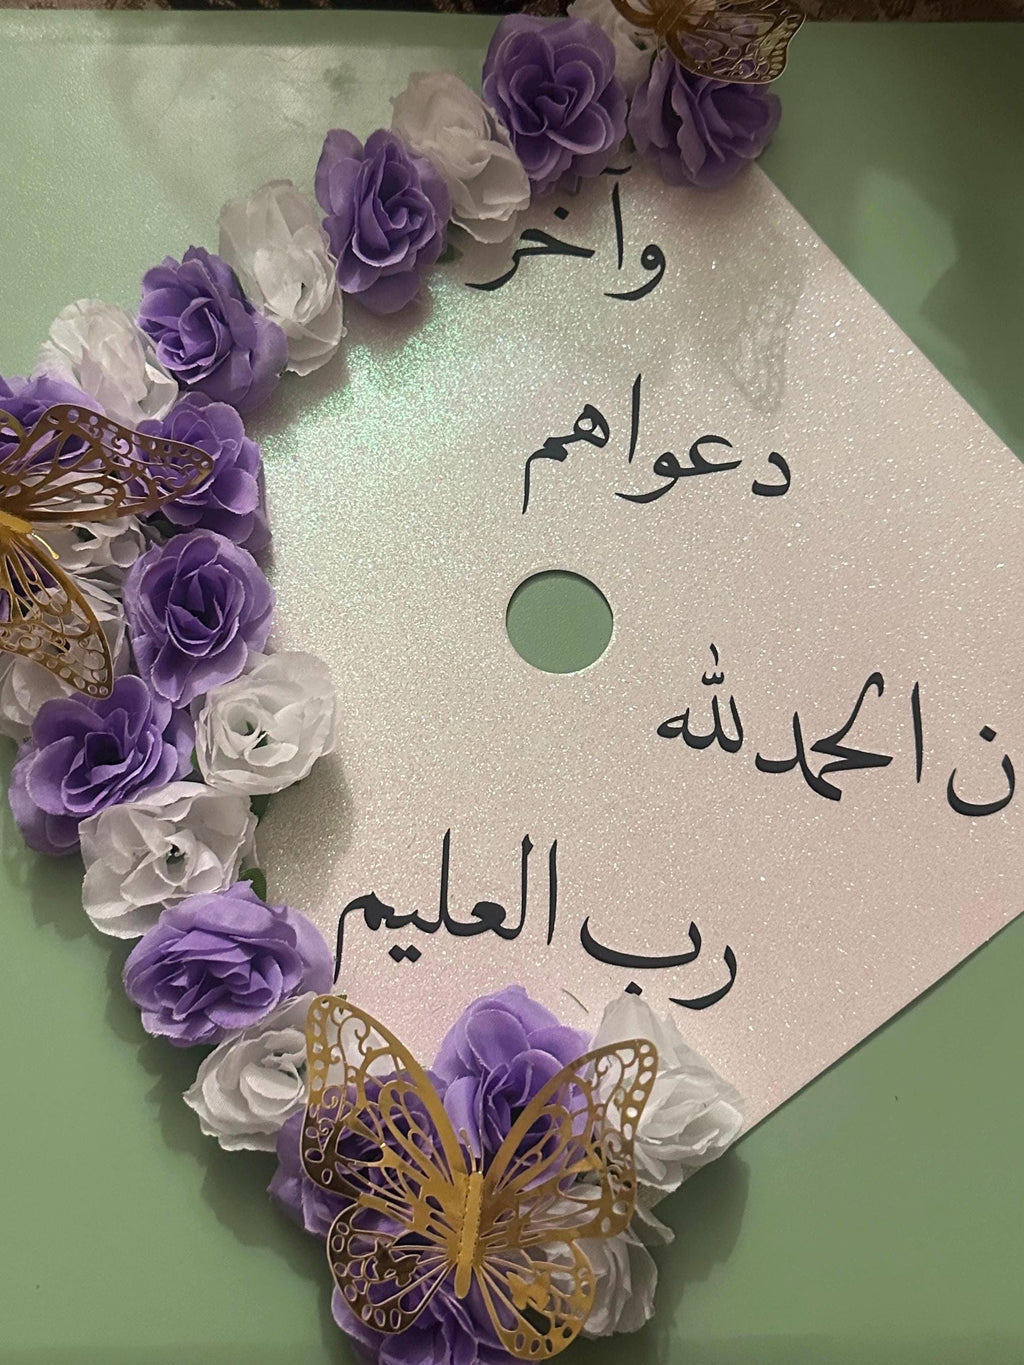 وآخر
دعواهم
ن الحمد لله
رب العليم